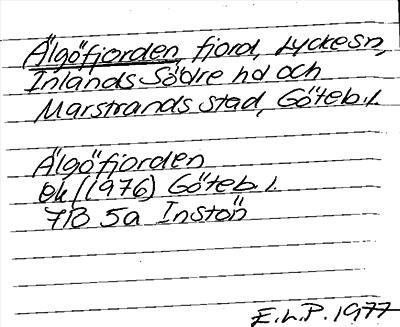 Älgöfjorden, fjord, Lyckesn,
Inlands Södre hd och
Marstrands stad, Göteb.l.
Älgöfjorden
Ek (1976) Göteb.l.
7B 5a Instön
E.L.P. 1977